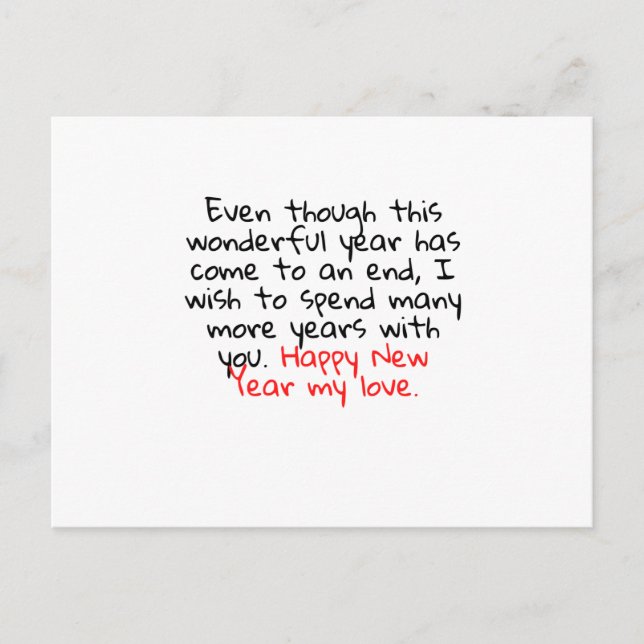 Even though this
wonderful year has
come to an end, I
wish to spend many
more years with
you. Happy New
Year my love.